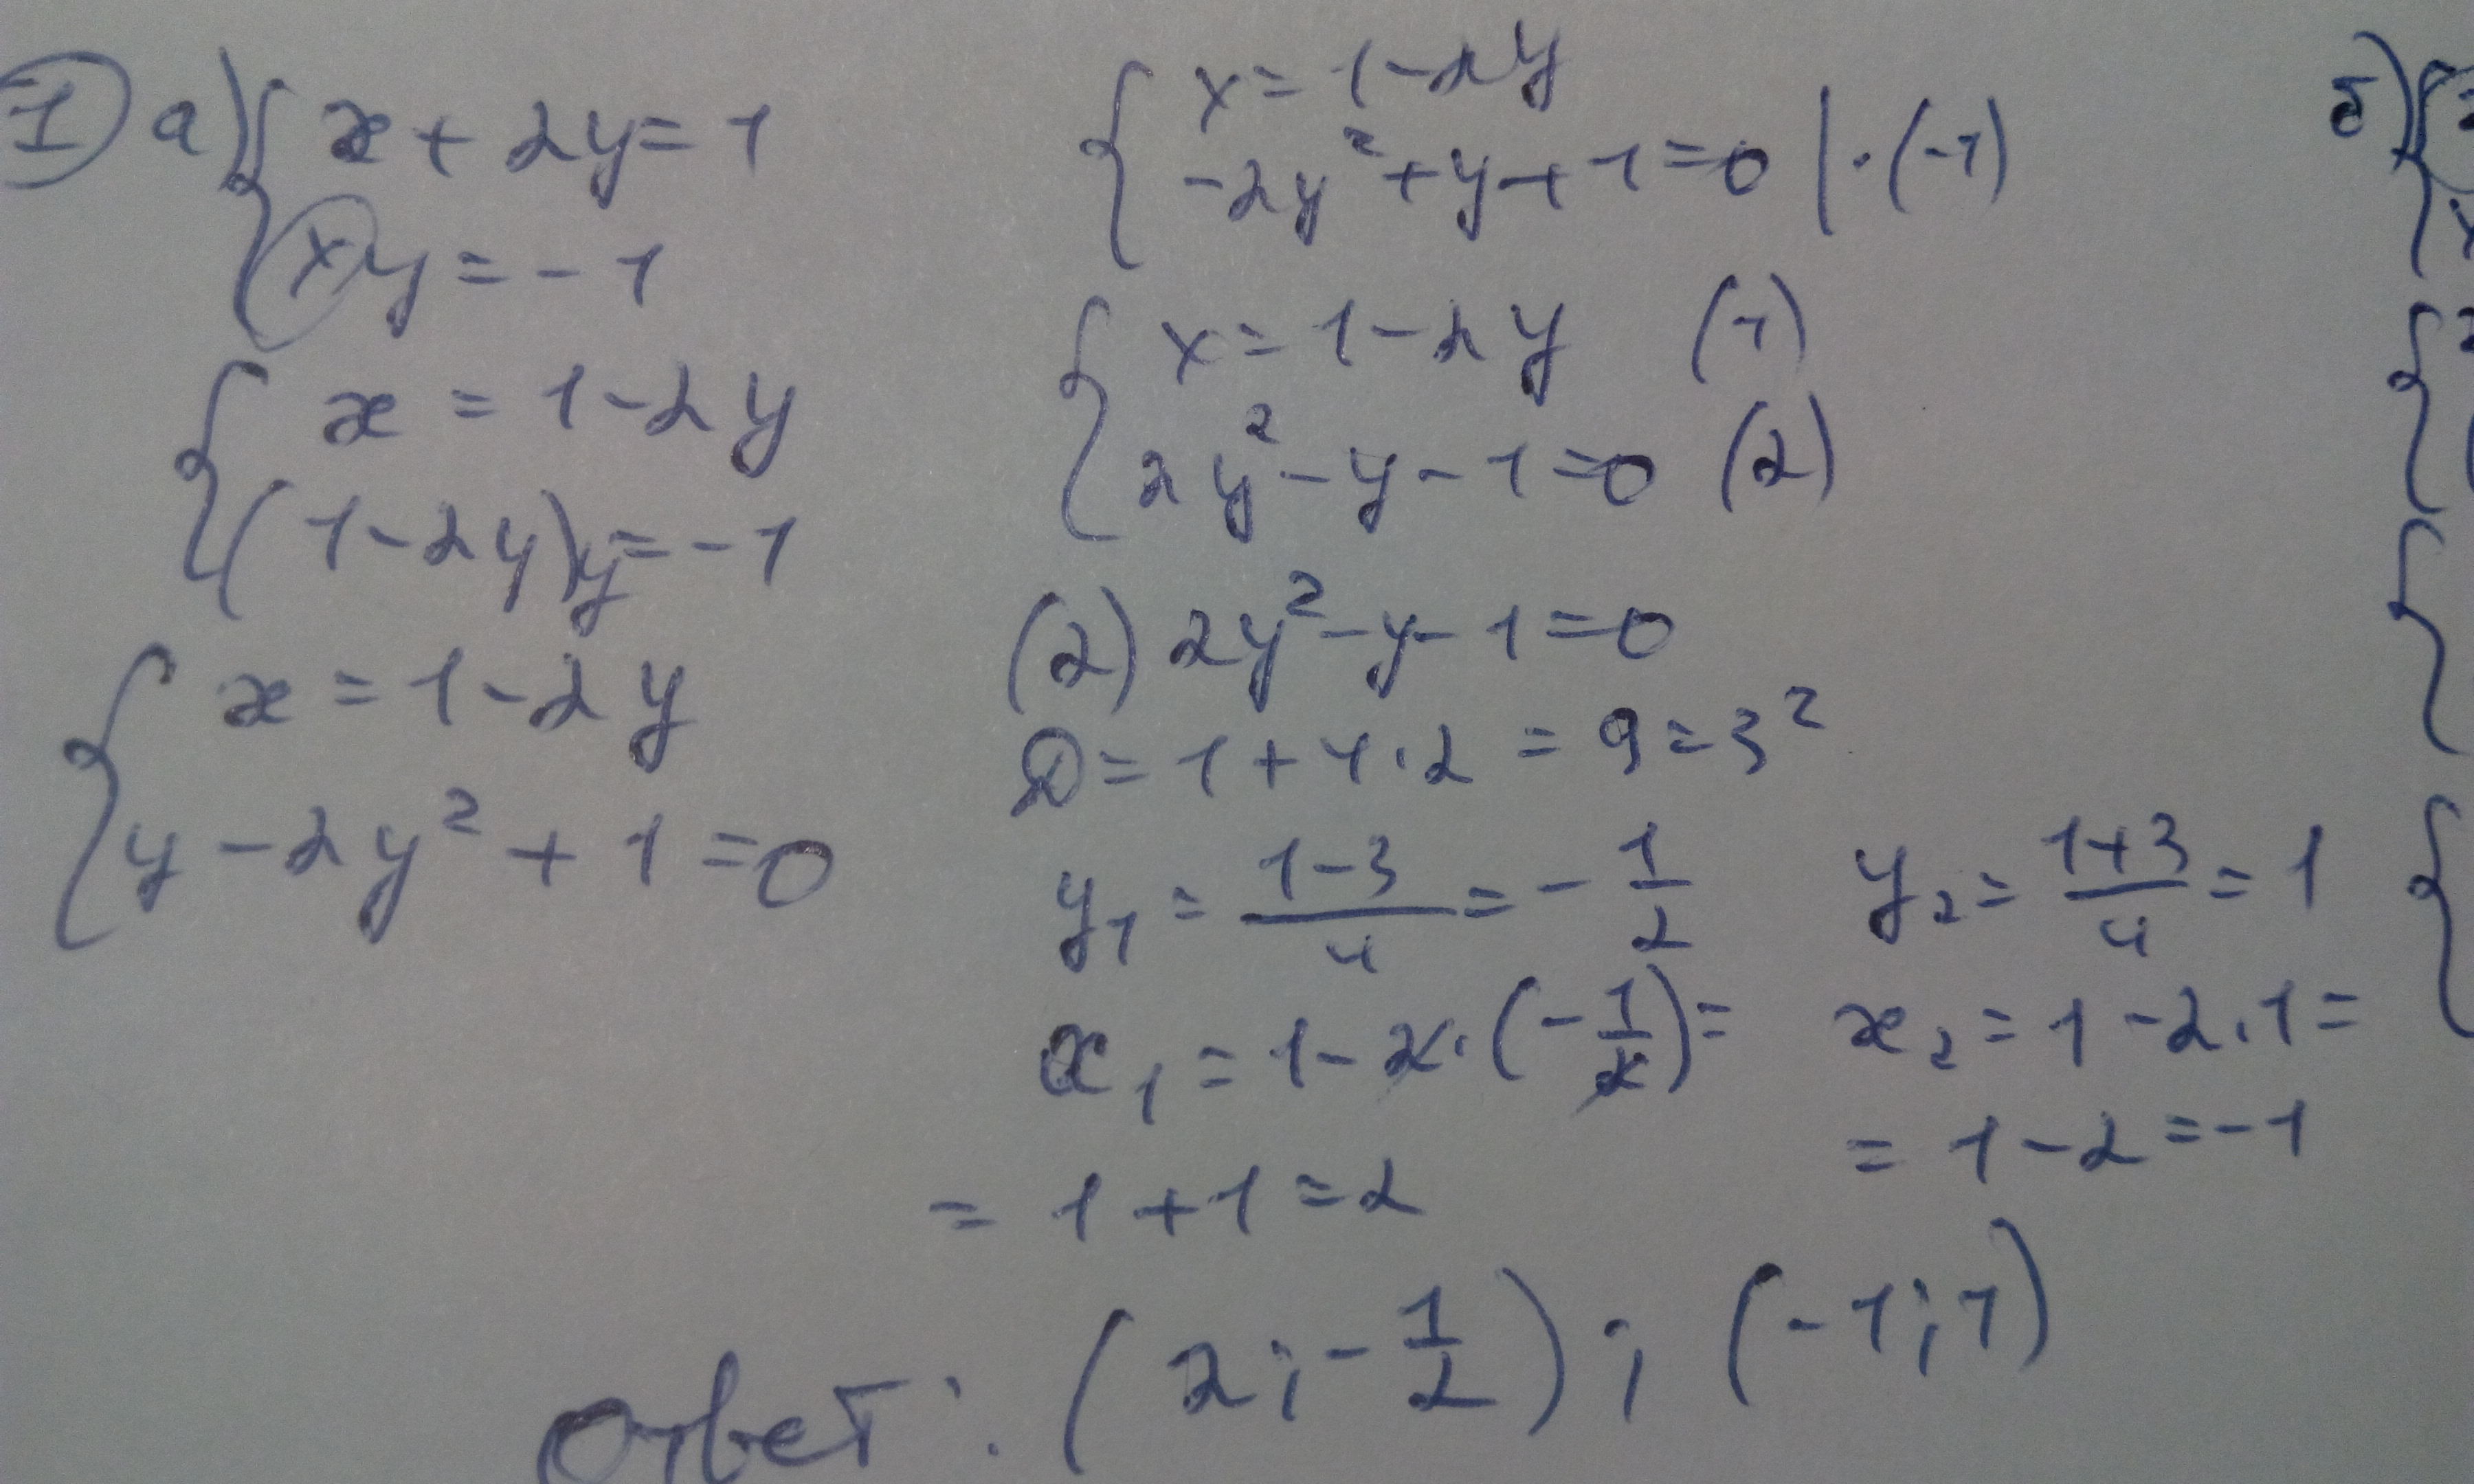 1 а) { x + 2y = 1
xy = -1
{ x = 1 - 2y
(1 - 2y)y = -1
{ x = 1 - 2y
y - 2y² + 1 = 0
{ x = 1 - 2y
-2y² + y + 1 = 0 | · (-1)
{ x = 1 - 2y (1)
2y² - y - 1 = 0 (2)
(2) 2y² - y - 1 = 0
D = 1 + 4 · 2 = 9 = 3²
y₁ = (1 - 3)/4 = - 1/2
x₁ = 1 - 2 · (- 1/2) =
= 1 + 1 = 2
y₂ = (1 + 3)/4 = 1
x₂ = 1 - 2 · 1 =
= 1 - 2 = -1
Ответ: (2; - 1/2); (-1; 1)
б) {